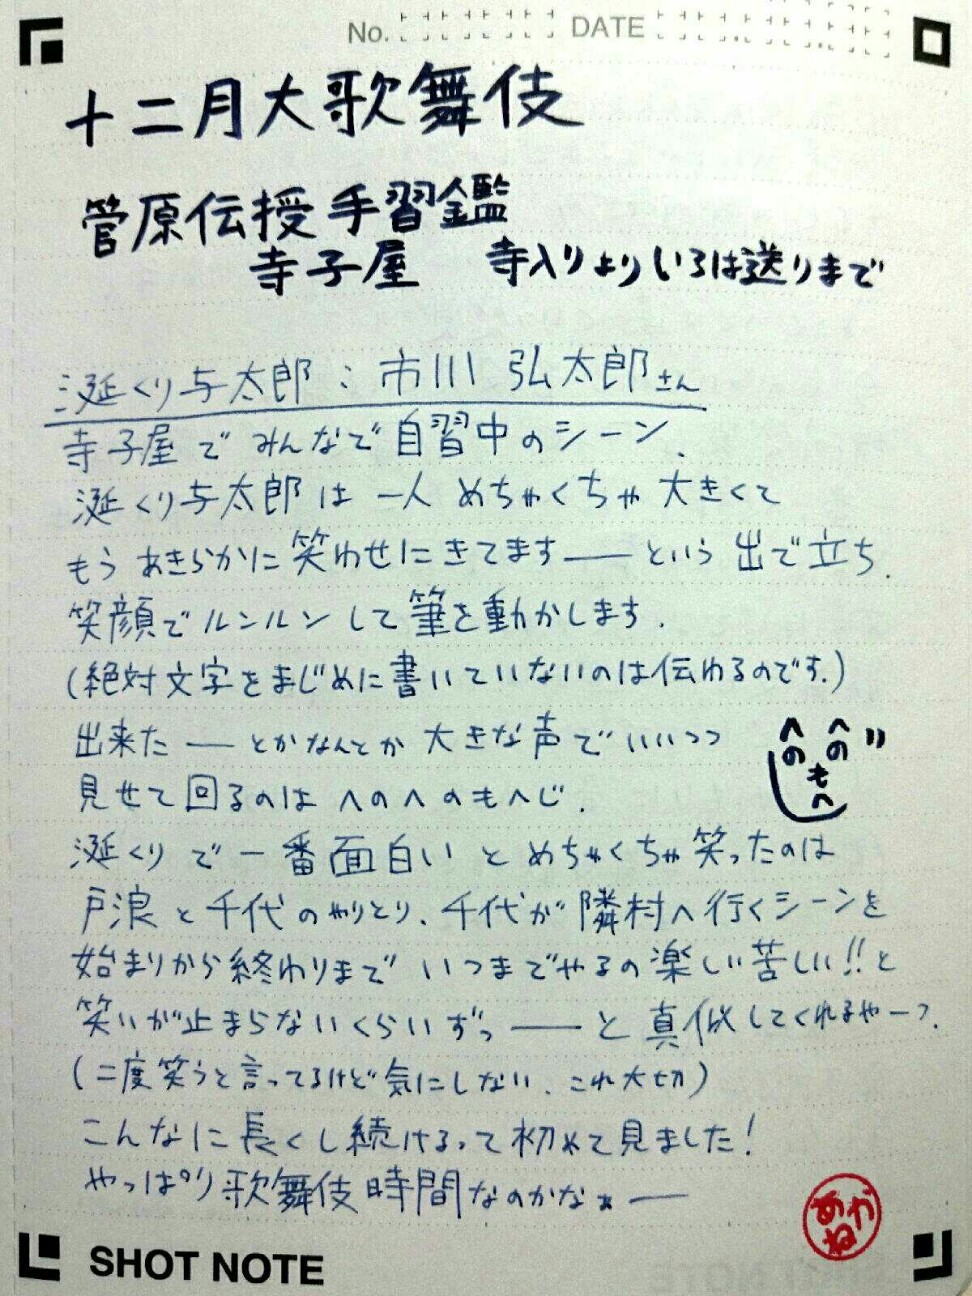 No. DATE
十二月大歌舞伎
菅原伝授手習鑑
寺子屋 寺入りよりいろは送りまで
涎くり与太郎：市川 弘太郎さん
寺子屋でみんなで自習中のシーン、
涎くり与太郎は一人めちゃくちゃ大きくて
もうあきらかに笑わせにきてます――という出で立ち.
笑顔でルンルンして筆を動かします.
(絶対文字をまじめに書いていないのは伝わるのです.)
出来た――とかなんとか大きな声でいいつつ
見せて回るのはへのへのもへじ.
へ へ
の の
も
へ
涎くりで一番面白いとめちゃくちゃ笑ったのは
戸浪と千代のやりとり、千代が隣村へ行くシーンを
始まりから終わりまでいつまでやるの楽しい苦しい!!と
笑いが止まらないくらいずっ――と真似してくれるやーつ.
(二度笑うと言ってるけど気にしない、これ大切)
こんなに長くし続けるって初めて見ました!
やっぱり歌舞伎時間なのかなぁ――
あかね
SHOT NOTE